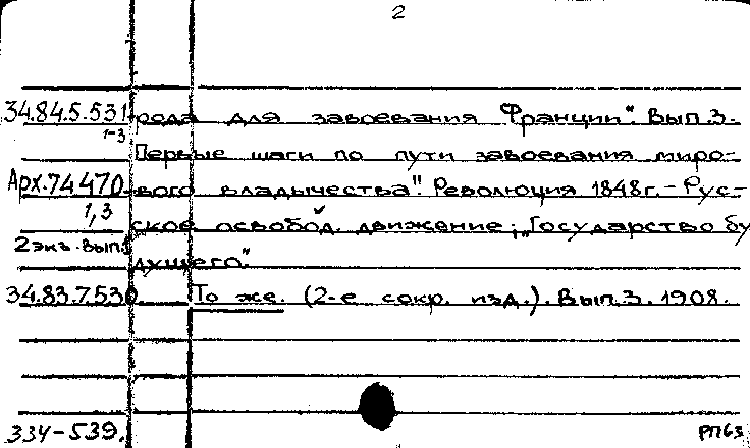 2
34.84.5.531 рода для завоевания Франции". Вып.3.
1=3
Первые шаги по пути завоевания миро-
Арх.74470 вого владычества". Революция 1848г. - Рус-
1,3
ское освобод. движение; „Государство бу
2экз. вып.
дущего".
34.83.7.530. То же. (2-е сокр. изд.). Вып.3. 1908.
334-539.
РП63